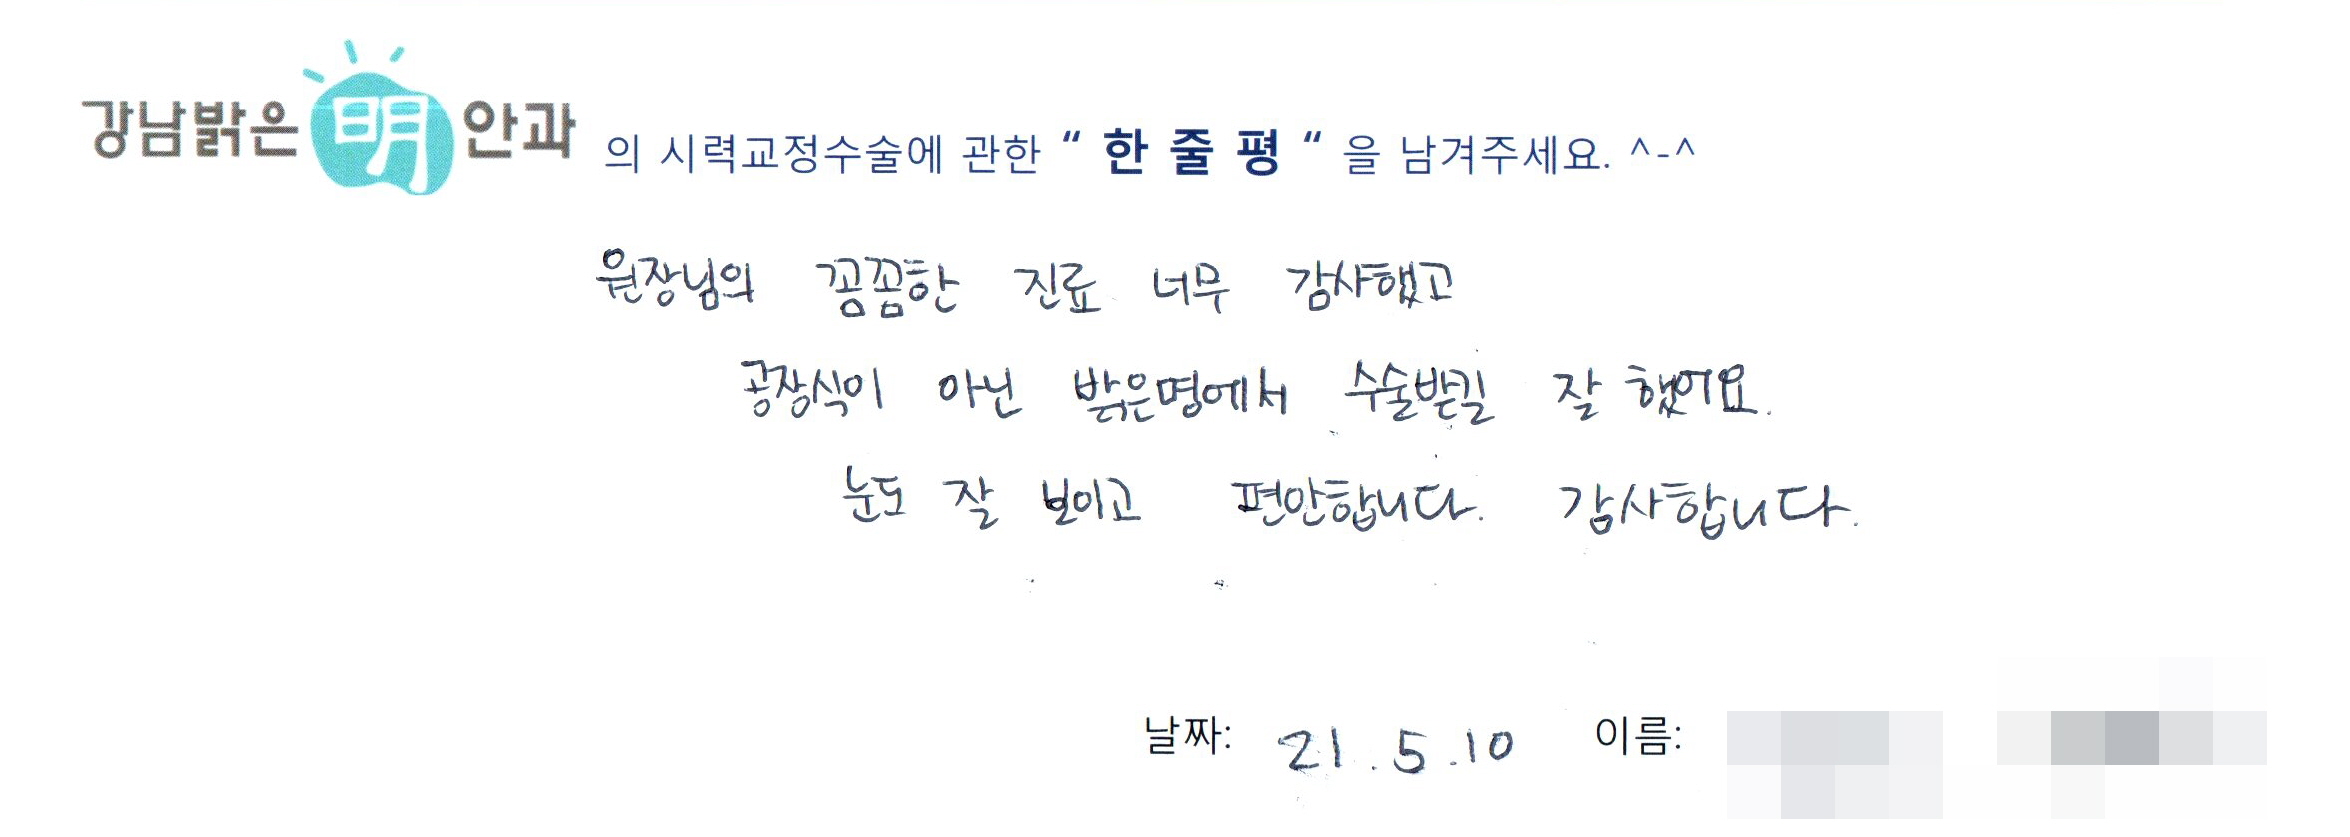 강남밝은明안과의 시력교정수술에 관한 “ 한 줄 평 “ 을 남겨주세요. ^-^
원장님의 꽁꼼한 진료 너무 감사했고
공장식이 아닌 밝은명에서 수술받길 잘 했어요.
눈도 잘 보이고 편안합니다. 감사합니다.
날짜: 21.5.10 이름: